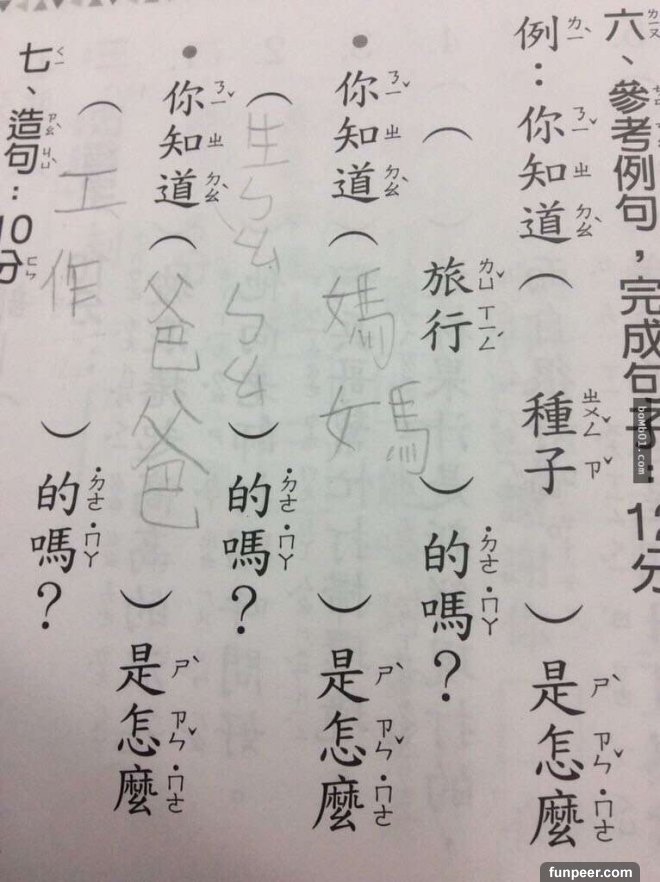 六、參考例句，完成句子：12分
例：你知道（種子）是怎麼
（旅行）的嗎？
•你知道（媽媽）是怎麼
（生ㄅㄠˇㄅㄠ）的嗎？
•你知道（爸爸）是怎麼
（工作）的嗎？
七、造句：10分
bomb01.com
funpeer.com